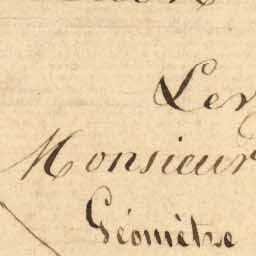 Ler
Monsieur
Géomètre